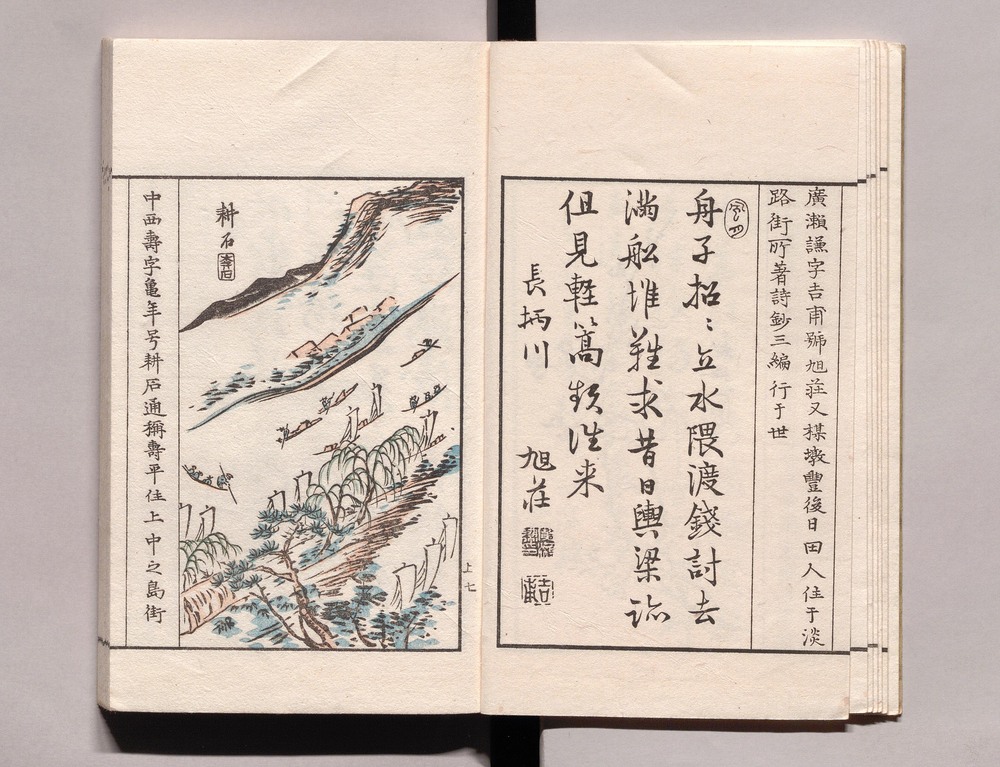 廣瀨謙字吉甫號旭莊又楳墩豐後日田人住于淡
路街所著詩鈔三編行于世
舟子招〻立水隈渡錢討去
滿船堆難求昔日輿梁跡
但見輕篙頻往来
長柄川
旭莊
耕石
上七
中西壽字亀年号耕石通稱壽平住上中之島街